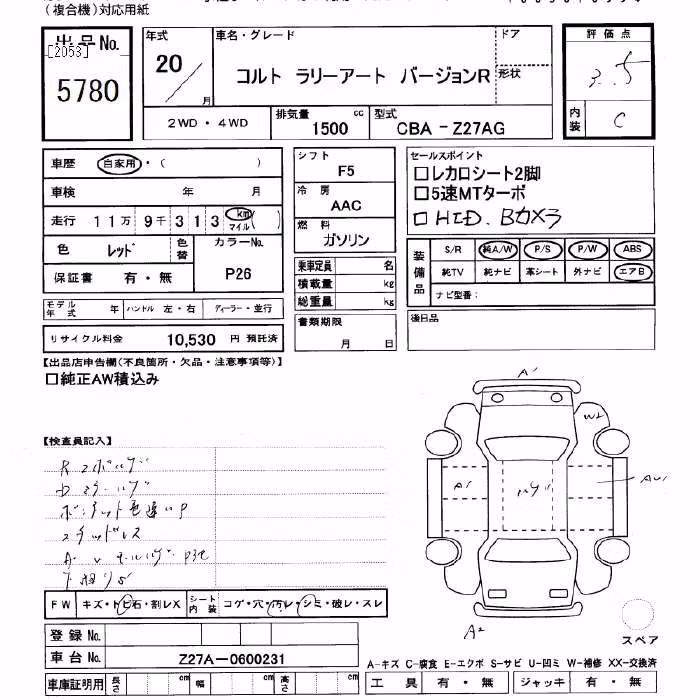 (複合機)対応用紙
出品No.
[2053]
5780
年式
20/
月
車名・グレード
コルト ラリーアート バージョンR
ドア
形状
2WD・4WD
排気量
1500
cc
型式
CBA-Z27AG
評価点
3.5
内装
C
車歴
自家用・(　)
車検
年　月
走行
11万9千313
km
マイル
( )
色
レッド
色替
カラーNo.
P26
保証書
有・無
モデル年式
年
ハンドル
左・右
ディーラー・並行
リサイクル料金
10,530 円 預託済
シフト
F5
冷房
AAC
燃料
ガソリン
乗車定員
名
積載量
kg
総重量
kg
書類期限
月　日
セールスポイント
□レカロシート2脚
□5速MTターボ
□HID.Bカメラ
装備品
S/R 純A/W P/S P/W ABS
純TV 純ナビ 革シート 外ナビ エアB
ナビ型番：
後日品
【出品店申告欄(不良箇所・欠品・注意事項等)】
□純正AW積込み
【検査員記入】
A1
W2
A1
AU1
A2
スペア
FW
キズ・トビ石・割レX
シート内装
コゲ・穴・汚レ・シミ・破レ・スレ
登録No.
車台No.
Z27A-0600231
車庫証明用
長さ
cm
幅
cm
高さ
cm
A-キズ C-腐食 E-エクボ S-サビ U-凹ミ W-補修 XX-交換済
工具
有・無
ジャッキ
有・無